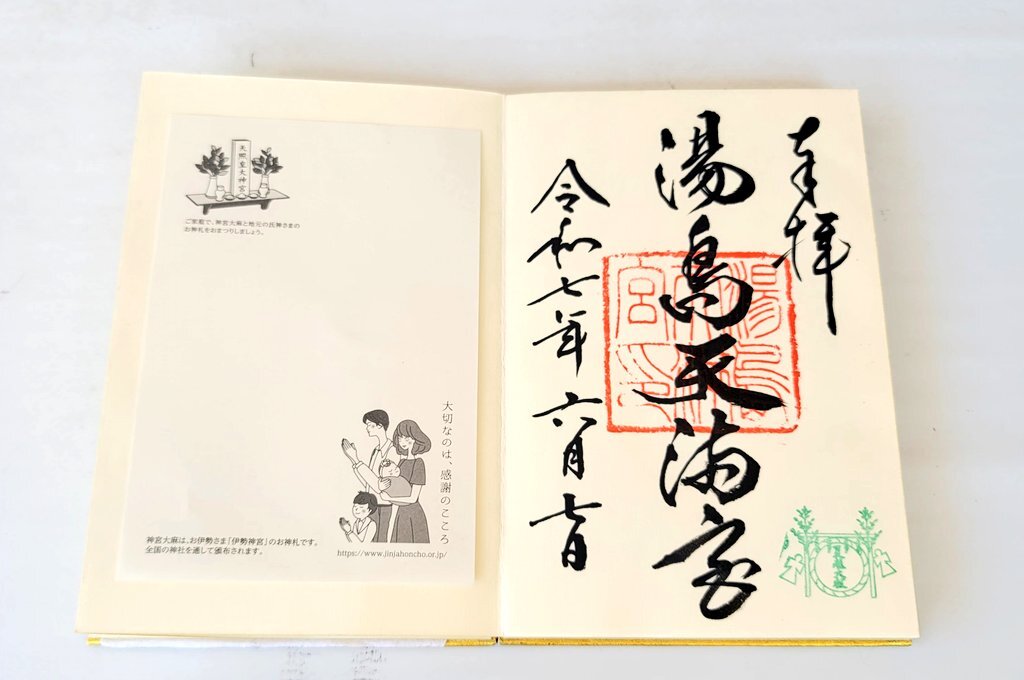 奉拝
湯島天満宮
令和七年六月七日
湯島天満宮印
夏越大祓
天照皇大神宮
ご家庭で、神宮大麻と地元の氏神さまの
お神札をおまつりしましょう。
大切なのは、感謝のこころ
神宮大麻は、お伊勢さま「伊勢神宮」のお神札です。
全国の神社を通して頒布されます。
https://www.jinjahoncho.or.jp/